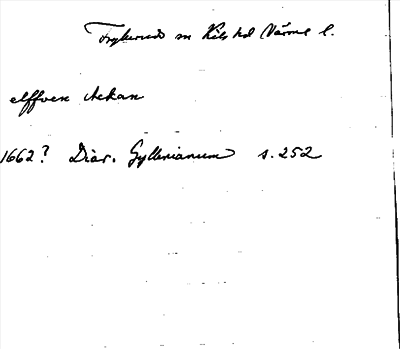 Frykeruds sn Kils hd Värml l.
elffven Aekan
1662? Diar. Gyllenianum s. 252